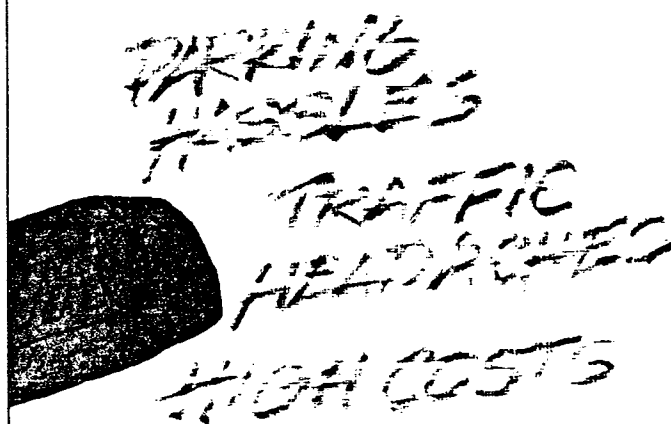 PARKING
HASSLES
TRAFFIC
HEADACHES
HIGH COSTS